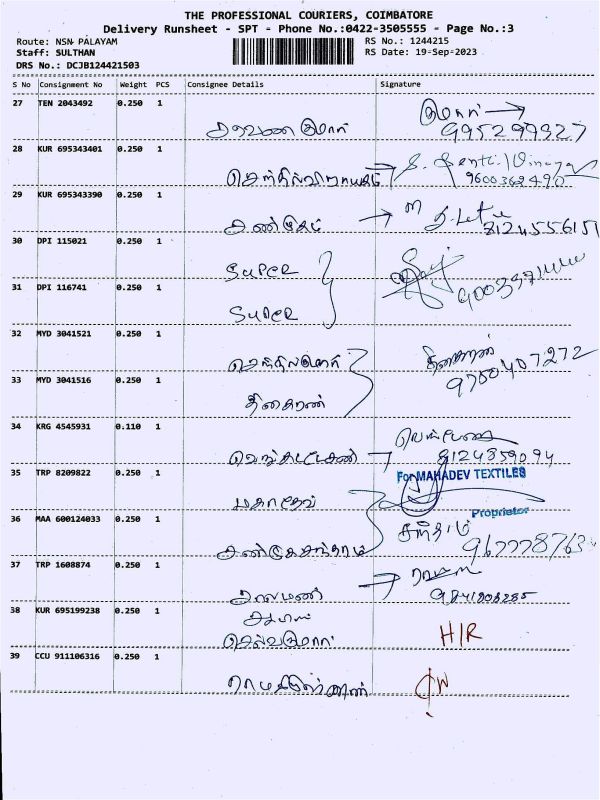 THE PROFESSIONAL COURIERS, COIMBATORE
Delivery Runsheet - SPT - Phone No.:0422-3505555 - Page No.:3
Route: NSN PALAYAM
RS No.: 1244215
Staff: SULTHAN
RS Date: 19-Sep-2023
DRS No.: DCJB124421503
S No Consignment No Weight PCS Consignee Details Signature
27 TEN 2043492 0.250 1
சரவணகுமார்
குமார்
995299327
28 KUR 695343401 0.250 1
செந்தில்விநாயகம்
9600362490
29 KUR 695343390 0.250 1
8124556151
30 DPI 115021 0.250 1
SUPER
31 DPI 116741 0.250 1
SUPER
32 MYD 3041521 0.250 1
செந்தில்குமார்
9750407272
33 MYD 3041516 0.250 1
தினகரன்
34 KRG 4545931 0.110 1
வெங்கடேசன்
8124859094
35 TRP 8209822 0.250 1
மகாதேவ்
For MAHADEV TEXTILES
Proprietor
36 MAA 600124033 0.250 1
37 TRP 1608874 0.250 1
பாலமணி
9841808285
38 KUR 695199238 0.250 1
செல்வகுமார்
H/R
39 CCU 911106316 0.250 1